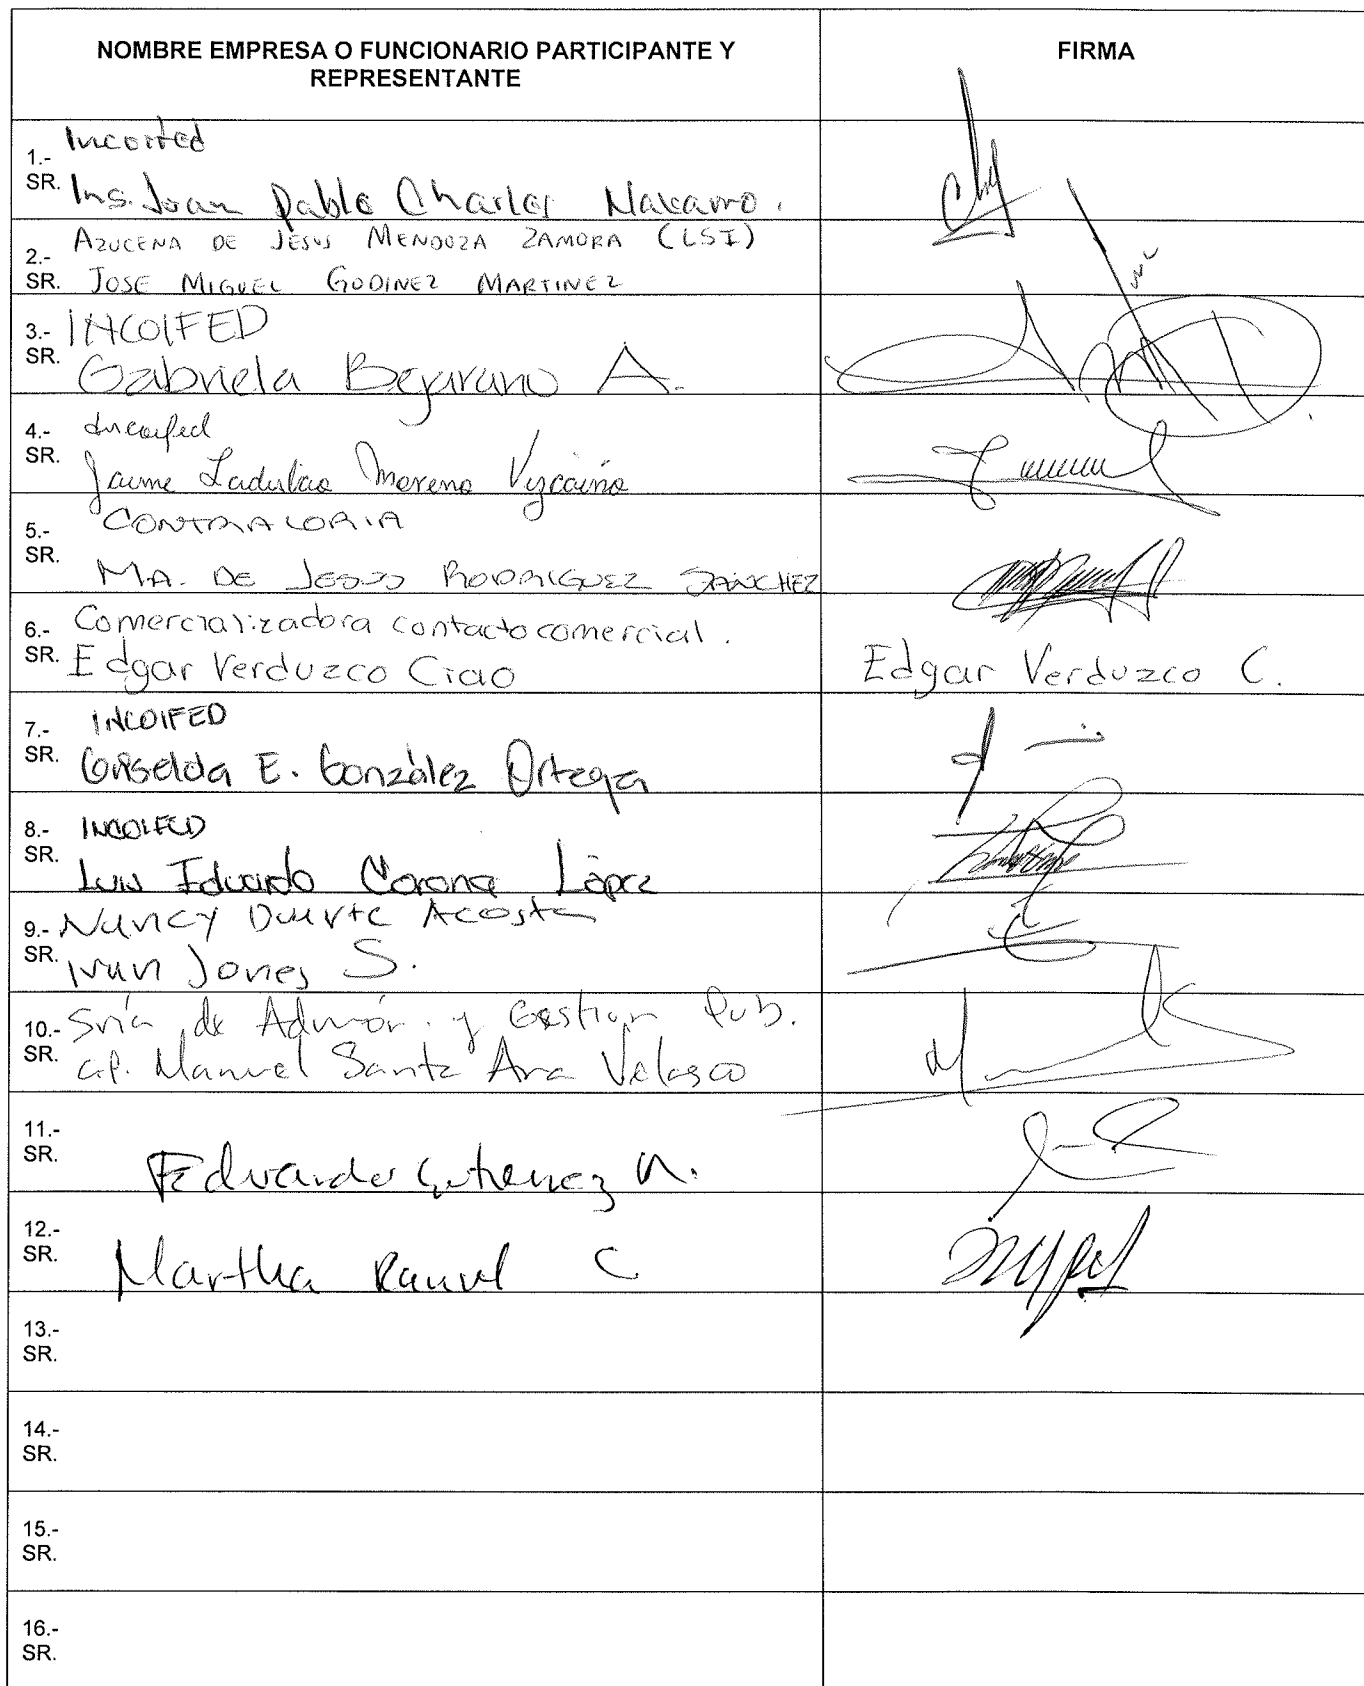 NOMBRE EMPRESA O FUNCIONARIO PARTICIPANTE Y
REPRESENTANTE
FIRMA
1.- Incoifed
SR. Ing. Joan Pablo Charles Navarro.
2.- AZUCENA DE JESUS MENDOZA ZAMORA (LSI)
SR. JOSE MIGUEL GODINEZ MARTINEZ
3.- INCOIFED
SR. Gabriela Bejarano A.
4.- Incoifed
SR. Jaime Ladislao Moreno Vizcaino
5.- CONTRALORIA
SR. MA. DE JESUS RODRIGUEZ SANCHEZ
6.- Comercializadora contacto comercial.
SR. Edgar Verduzco Ciao
Edgar Verduzco C.
7.- INCOIFED
SR. Griselda E. González Ortega
8.- INCOIFED
SR. Luis Eduardo Corona López
9.- Nancy Duarte Acosta
SR. Ivan Jones S.
10.- Sría de Admón. y Gestion Pub.
SR. C.P. Manuel Santa Ana Velasco
11.-
SR. Eduardo Gutierrez N.
12.-
SR. Martha C
13.-
SR.
14.-
SR.
15.-
SR.
16.-
SR.